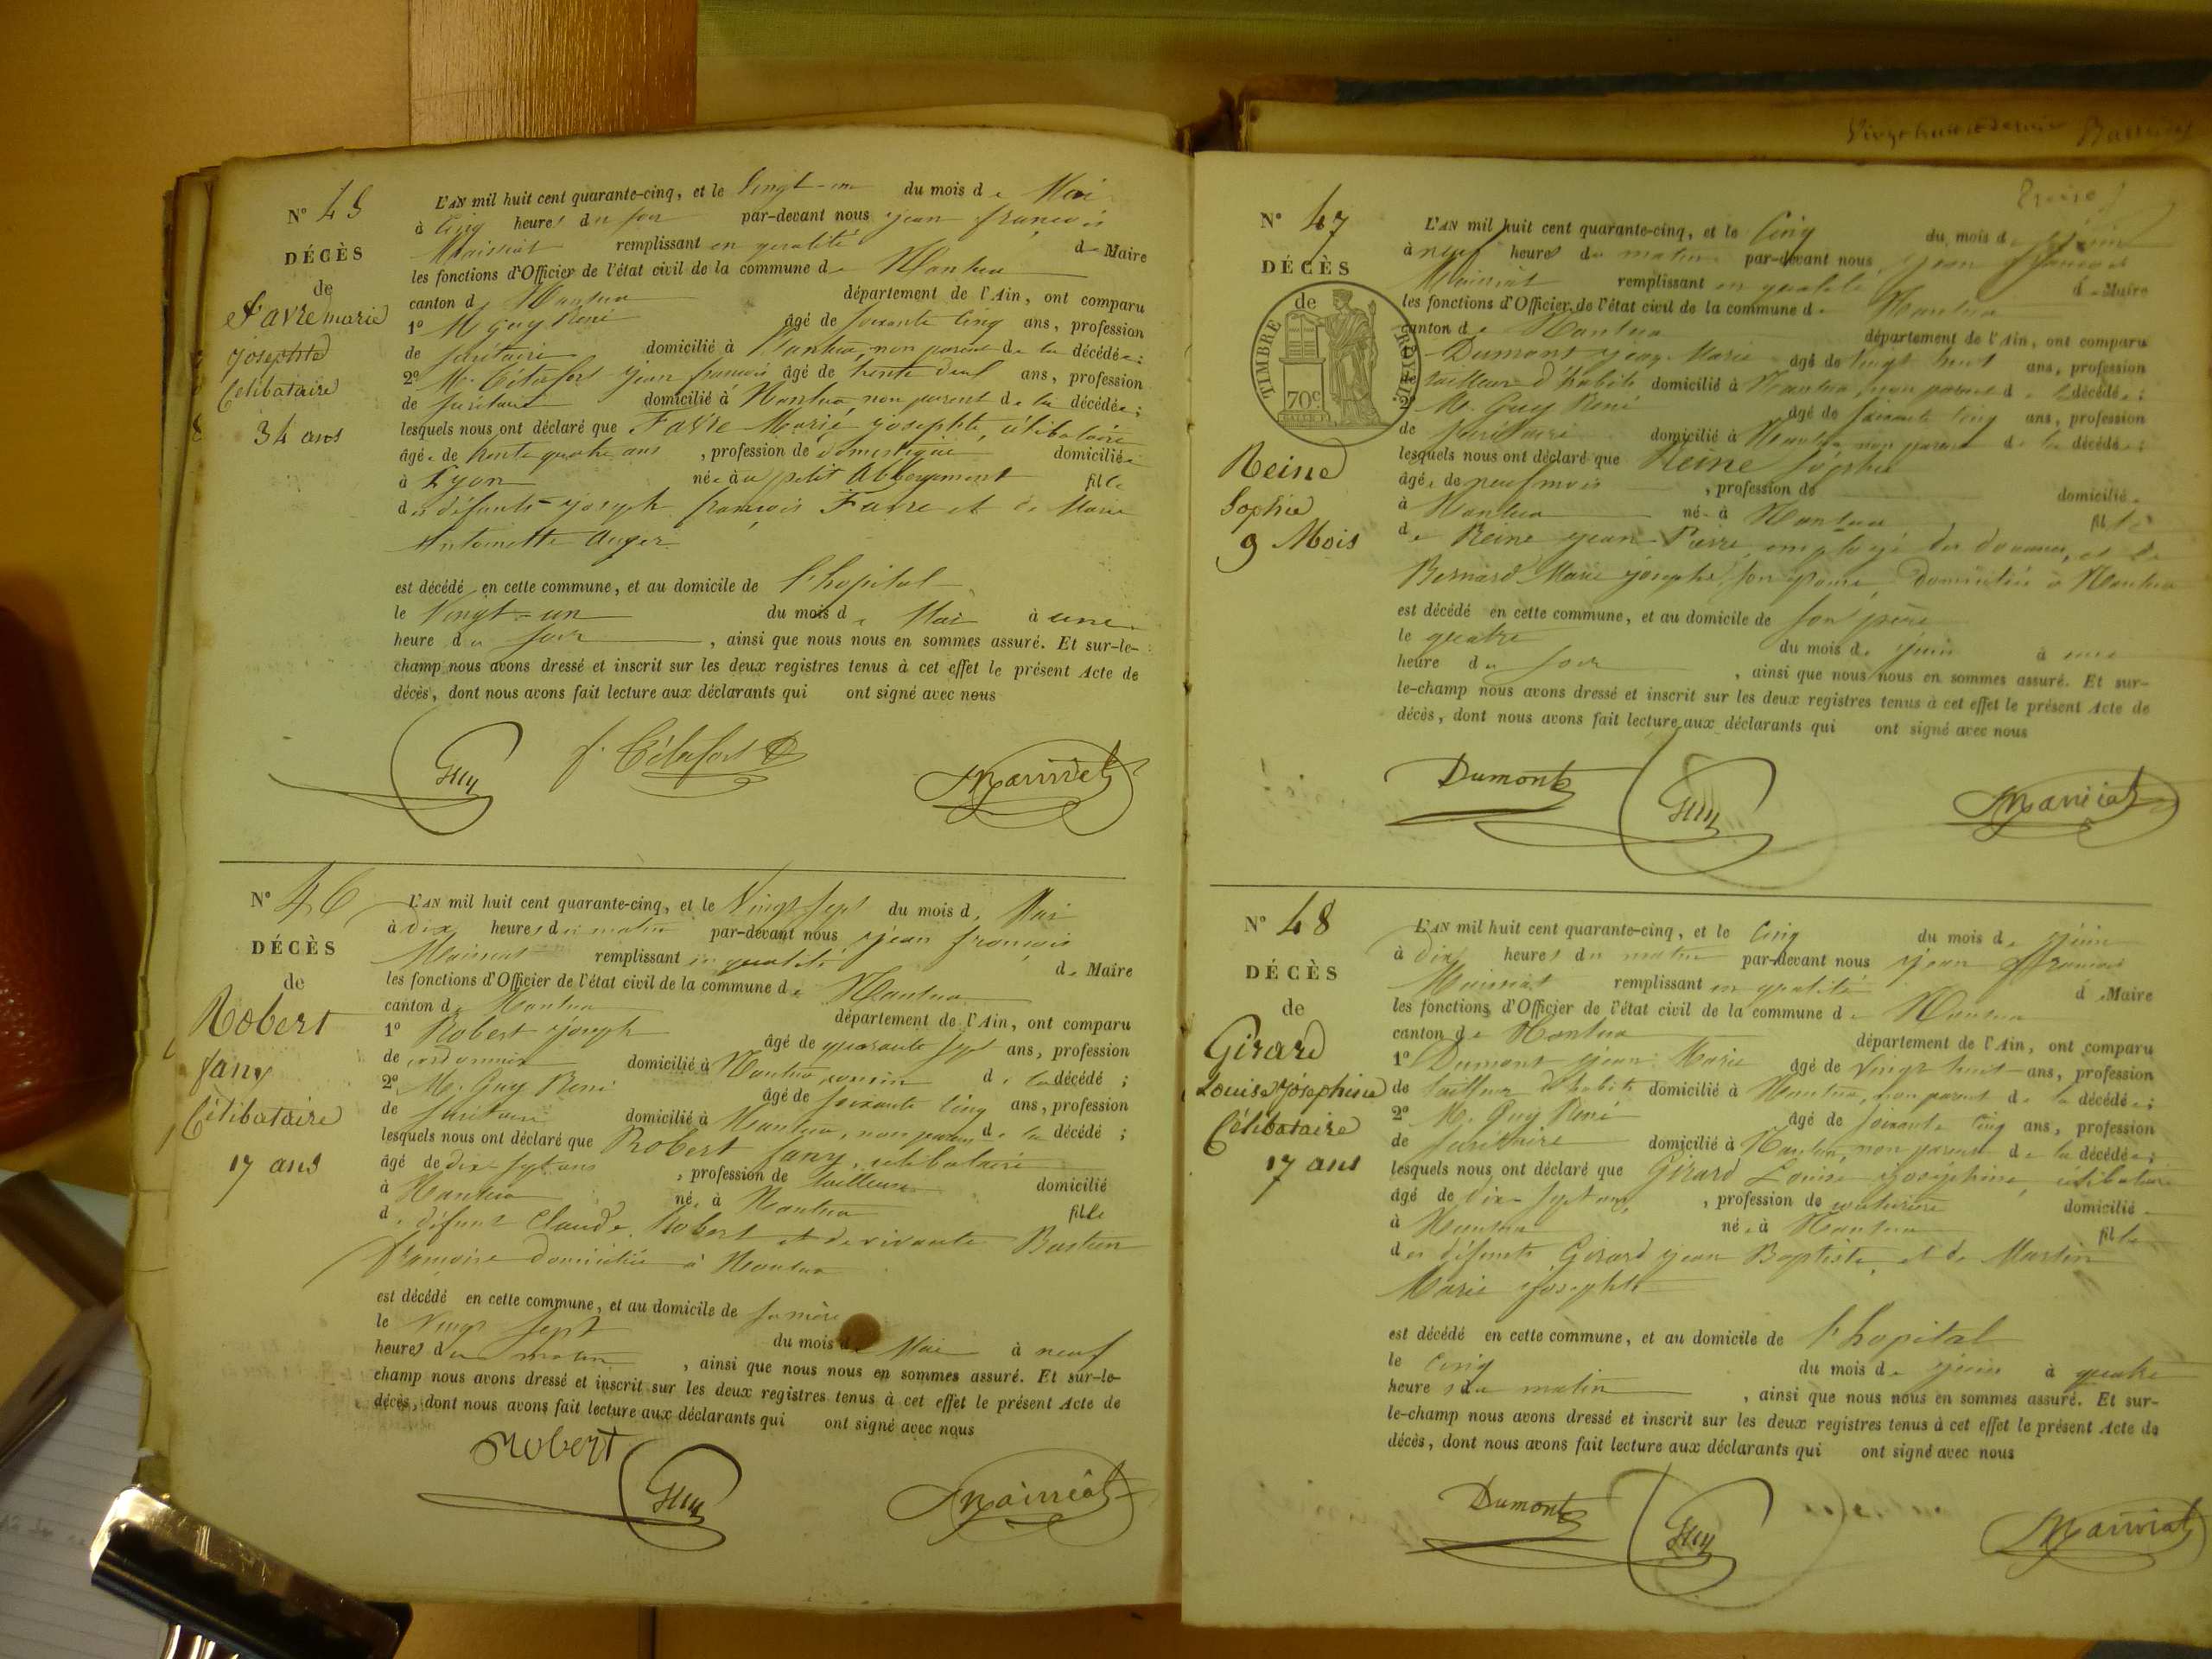 N° 45
DÉCÈS
de
Favre marie
josephte
Célibataire
34 ans
L'AN mil huit cent quarante-cinq, et le Vingt-un du mois de Mai
à Cinq heures du soir par-devant nous jean françois
Maissiat remplissant en qualité de Maire
les fonctions d'Officier de l'état civil de la commune de Nantua
canton de Nantua département de l'Ain, ont comparu
1° M Guy René âgé de soixante Cinq ans, profession
de domicilié à Nantua, non parent de la décédée;
2° M. jean francois âgé de trente deux ans, profession
de domicilié à Nantua non parent de la décédée;
lesquels nous ont déclaré que Favre Marie josephte, célibataire
âgée de trente quatre ans, profession de domestique domiciliée
à Lyon née au petit Abbergement fille
des défunts joseph françois Favre et de Marie
Antoinette Auger
est décédé en cette commune, et au domicile de l'hopital
le Vingt-un du mois de Mai à une
heure du soir, ainsi que nous nous en sommes assuré. Et sur-le-
champ nous avons dressé et inscrit sur les deux registres tenus à cet effet le présent Acte de
décès, dont nous avons fait lecture aux déclarants qui ont signé avec nous
Guy Maissiat
N° 46
DÉCÈS
de
Robert
fany
Célibataire
17 ans
L'AN mil huit cent quarante-cinq, et le Vingt sept du mois de Mai
à dix heures du matin par-devant nous jean françois
Maissiat remplissant en qualité de Maire
les fonctions d'Officier de l'état civil de la commune de Nantua
canton de Nantua département de l'Ain, ont comparu
1° Robert joseph âgé de quarante sept ans, profession
de cordonnier domicilié à Nantua cousin de la décédé;
2° M. Guy René âgé de soixante Cinq ans, profession
de domicilié à Nantua, non parent de la décédé;
lesquels nous ont déclaré que Robert fany, célibataire
âgé de dix sept ans, profession de tailleuse domicilié
à Nantua né à Nantua fille
de défunt Claude Robert et de vivante Bastien
françoise domiciliée à Nantua
est décédé en cette commune, et au domicile de sa mère
le Vingt sept du mois de Mai à neuf
heures du matin, ainsi que nous nous en sommes assuré. Et sur-le-
champ nous avons dressé et inscrit sur les deux registres tenus à cet effet le présent Acte de
décès, dont nous avons fait lecture aux déclarants qui ont signé avec nous
Robert Guy Maissiat
N° 47
DÉCÈS
de
TIMBRE ROYAL
70c
Reine
Sophie
9 Mois
L'AN mil huit cent quarante-cinq, et le Cinq du mois de juin
à neuf heures du matin par-devant nous jean françois
Maissiat remplissant en qualité de Maire
les fonctions d'Officier de l'état civil de la commune de Nantua
canton de Nantua département de l'Ain, ont comparu
Dumont jean Marie âgé de Vingt huit ans, profession
de tailleur d'habits domicilié à Nantua, non parent de la décédée;
2° M. Guy René âgé de soixante cinq ans, profession
de domicilié à Nantua, non parent de la décédée;
lesquels nous ont déclaré que Reine Sophie
âgée de neuf mois, profession de domiciliée
à Nantua née à Nantua fille
de Reine jean Pierre, employé des douanes, et de
Bernard Marie josephte son épouse, domiciliés à Nantua
est décédé en cette commune, et au domicile de son père
le quatre du mois de juin à une
heure du soir, ainsi que nous nous en sommes assuré. Et sur-
le-champ nous avons dressé et inscrit sur les deux registres tenus à cet effet le présent Acte de
décès, dont nous avons fait lecture aux déclarants qui ont signé avec nous
Dumont Guy Maissiat
N° 48
DÉCÈS
de
Girard
Louise joséphine
Célibataire
17 ans
L'AN mil huit cent quarante-cinq, et le Cinq du mois de juin
à dix heures du matin par-devant nous jean françois
Maissiat remplissant en qualité de Maire
les fonctions d'Officier de l'état civil de la commune de Nantua
canton de Nantua département de l'Ain, ont comparu
1° Dumont jean Marie âgé de Vingt huit ans, profession
de tailleur d'habits domicilié à Nantua, non parent de la décédée;
2° M. Guy René âgé de soixante Cinq ans, profession
de domicilié à Nantua, non parent de la décédée;
lesquels nous ont déclaré que Girard Louise joséphine, célibataire
âgé de dix-sept ans, profession de couturière domiciliée
à Nantua née à Nantua fille
des défunts Girard jean Baptiste et de Martin
Marie josephte
est décédé en cette commune, et au domicile de l'hopital
le Cinq du mois de juin à quatre
heures du matin, ainsi que nous nous en sommes assuré. Et sur-
le-champ nous avons dressé et inscrit sur les deux registres tenus à cet effet le présent Acte de
décès, dont nous avons fait lecture aux déclarants qui ont signé avec nous
Dumont Guy Maissiat